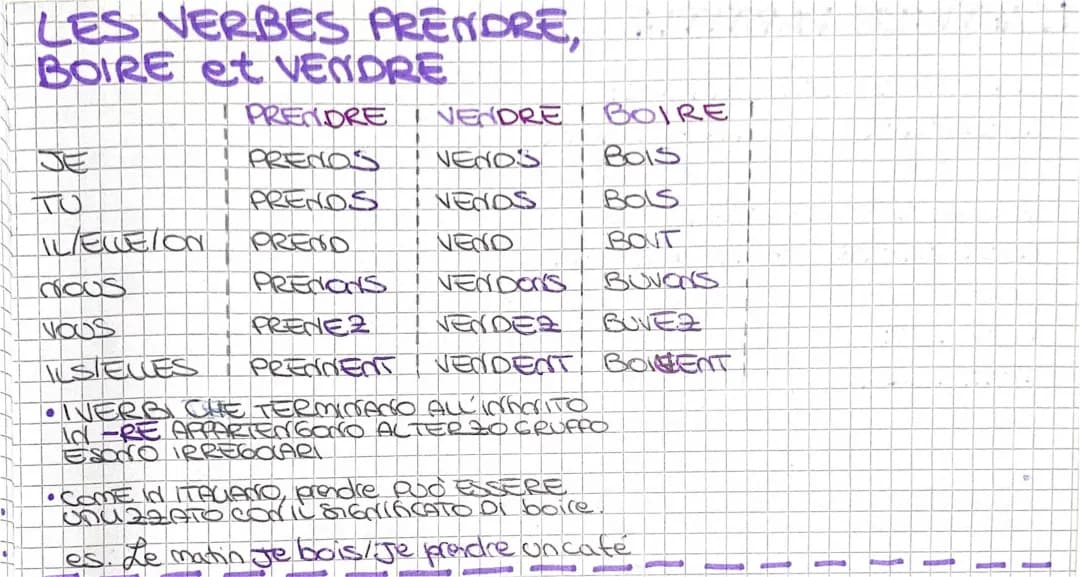 LES VERBES PRENDRE,
BOIRE et VENDRE
PRENDRE VENDRE BOIRE
JE PRENDS VENDS BOIS
TU PRENDS VENDS BOIS
IL/ELLE/ON PREND VEND BOIT
NOUS PRENONS VENDONS BUVONS
VOUS PRENEZ VENDEZ BUVEZ
ILS/ELLES PRENNENT VENDENT BOIVENT
• I VERBI CHE TERMINANO ALL'INFINITO
IN -RE APPARTENGONO AL TERZO GRUPPO
E SONO IRREGOLARI
• COME IN ITALIANO, prendre PUÒ ESSERE
UTILIZZATO CON IL SIGNIFICATO DI boire.
es. Le matin je bois/je prendre un café